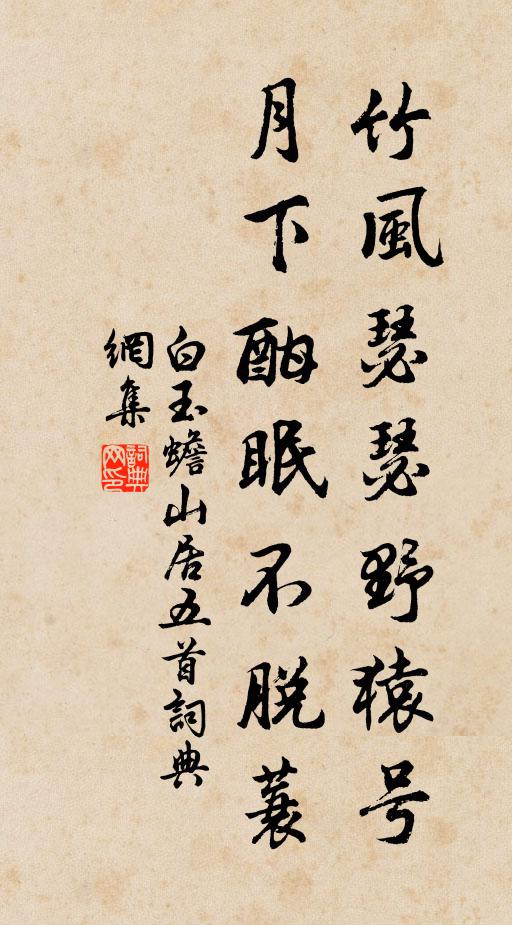 竹風瑟瑟野猿号
月下酣眠不脱蓑
白玉蟾山居五首詞典
網集
詞典网印